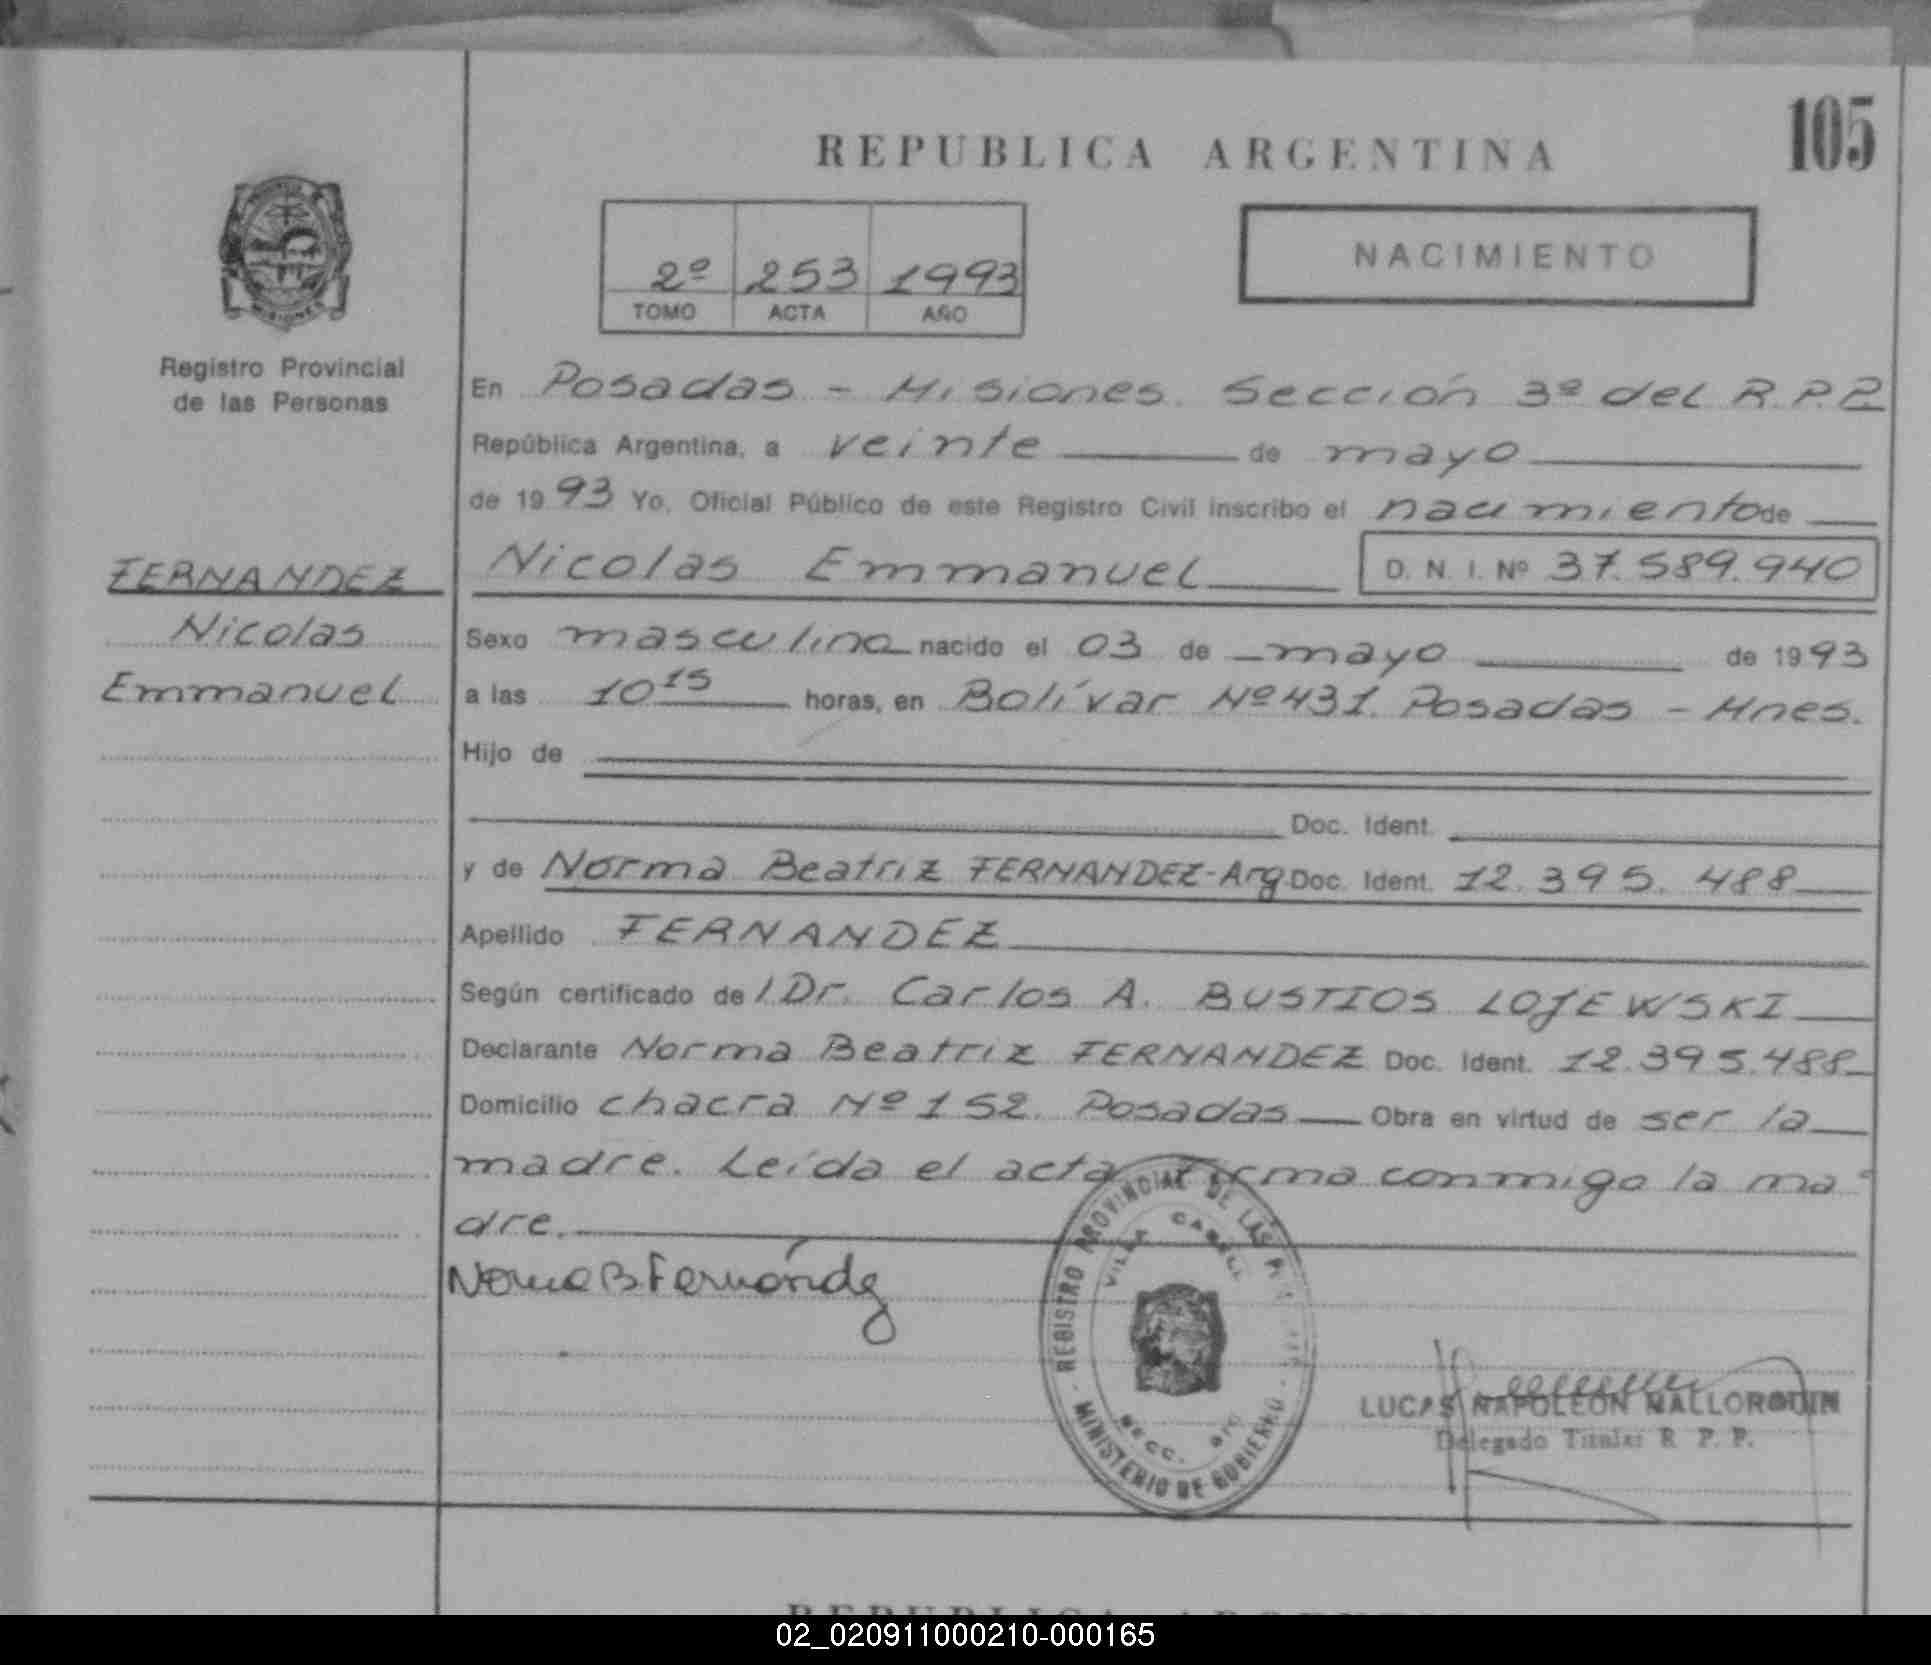 105
REPUBLICA ARGENTINA
NACIMIENTO
2º 253 1993
TOMO ACTA AÑO
MISIONES
Registro Provincial
de las Personas
FERNANDEZ
Nicolas
Emmanuel
En Posadas - Misiones. Sección 3º del R.P.P.
República Argentina, a veinte de mayo
de 1993 Yo, Oficial Público de este Registro Civil inscribo el nacimiento de
Nicolas Emmanuel D. N. I. Nº 37.589.940
Sexo masculino nacido el 03 de mayo de 1993
a las 10 15 horas, en Bolívar Nº 431. Posadas - Mnes.
Hijo de
Doc. Ident.
y de Norma Beatriz FERNANDEZ-Arg. Doc. Ident. 12.395.488
Apellido FERNANDEZ
Según certificado de l Dr. Carlos A. BUSTIOS LOJEWSKI
Declarante Norma Beatriz FERNANDEZ Doc. Ident. 12.395.488
Domicilio chacra Nº 152. Posadas Obra en virtud de ser la
madre. Leída el acta firma conmigo la ma
dre.
Norma B Fernández
REGISTRO PROVINCIAL DE LAS
VILLA CABELL
SECC.
MINISTERIO DE GOBIERNO
LUCAS NAPOLEON MALLORQUIN
Delegado Titular R. P. P.
REPUBLICA ARGENTI
02_020911000210-000165